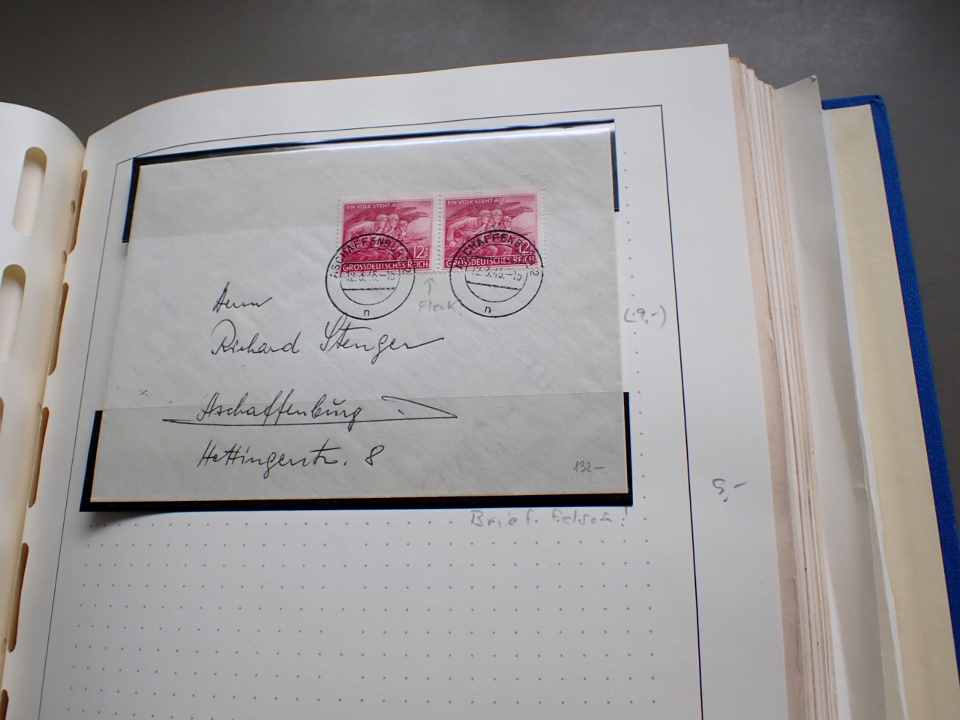 EIN VOLK STEHT AUF EIN VOLK STEHT AUF
12 12
GROSSDEUTSCHES REICH GROSSDEUTSCHES REICH
ASCHAFFENBURG 2 ASCHAFFENBURG 2
n n
Fleck
Herrn
Richard Stenger
(-9,-)
Aschaffenburg
Hettingerstr. 8
132-
5,-
Brief falsch!